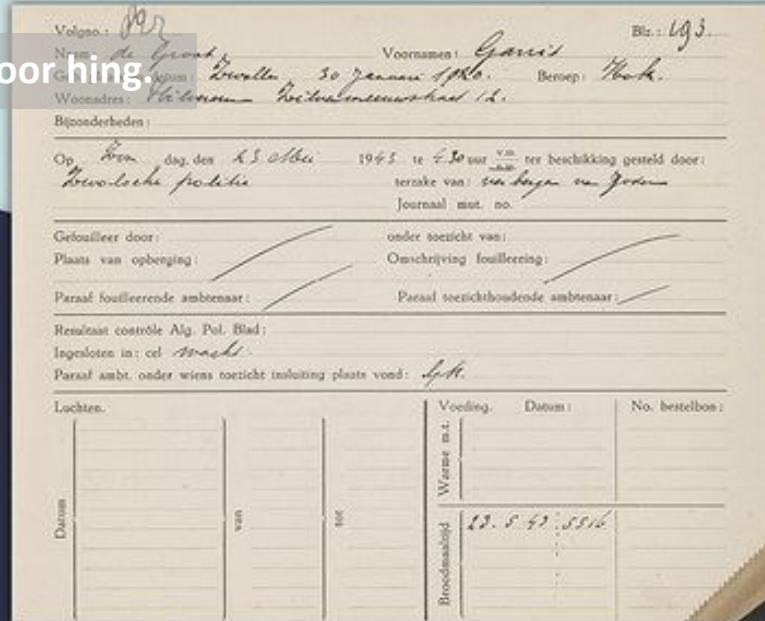 Volgno.: 192 Blz.: 193.
Naam: de Groot, Voornamen: Gerrit
oor hing.
Zwolle 30 Januari 1920. Beroep: Kok.
Woonadres: Hilversum 12.
Bijzonderheden:
Op Zon dag, den 23 Mei 1943 te 4.30 uur v.m. ter beschikking gesteld door:
Zwolsche politie terzake van: verbergen van Joden
Journaal mut. no.
Gefouilleerd door: onder toezicht van:
Plaats van opberging: Omschrijving fouilleering:
Paraaf fouilleerende ambtenaar: Paraaf toezichthoudende ambtenaar:
Resultaat contrôle Alg. Pol. Blad:
Ingesloten in: cel wacht.
Paraaf ambt. onder wiens toezicht insluiting plaats vond:
Luchten. Voeding. Datum: No. bestelbon:
Datum
van
tot
Warme m.t.
Broodmaaltijd
23. 5 43. 5516